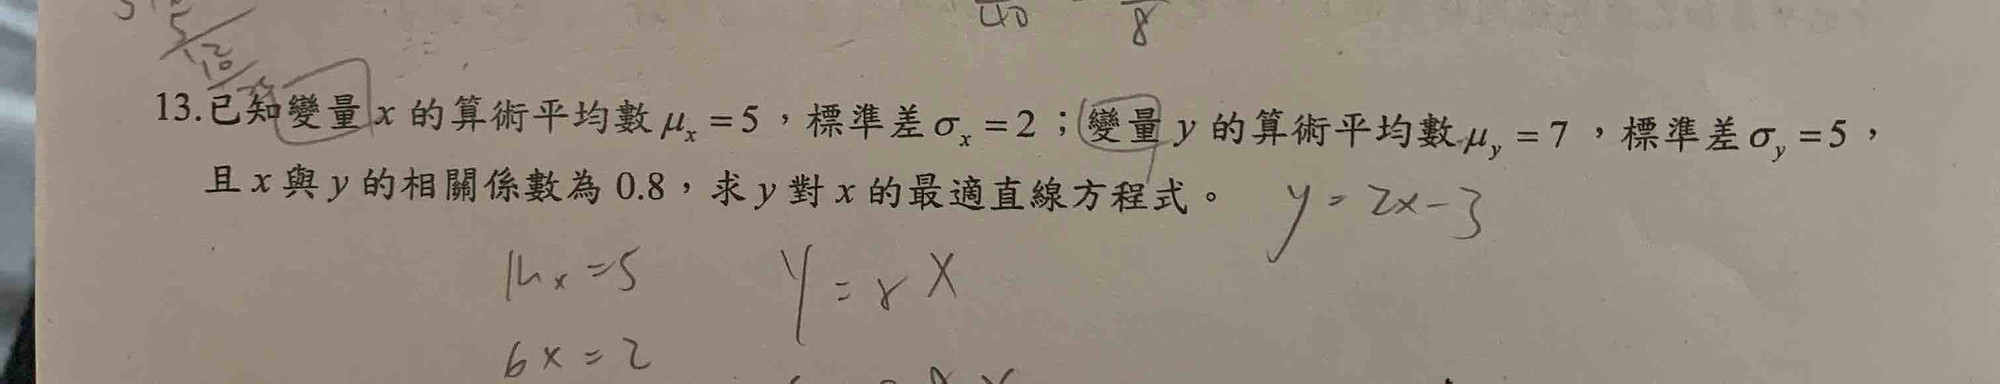 5
12
40
8
13.已知變量 x 的算術平均數 μx = 5，標準差 σx = 2；變量 y 的算術平均數 μy = 7，標準差 σy = 5，
且 x 與 y 的相關係數為 0.8，求 y 對 x 的最適直線方程式。 y = 2x-3
μx = 5 Y = r X
σx = 2